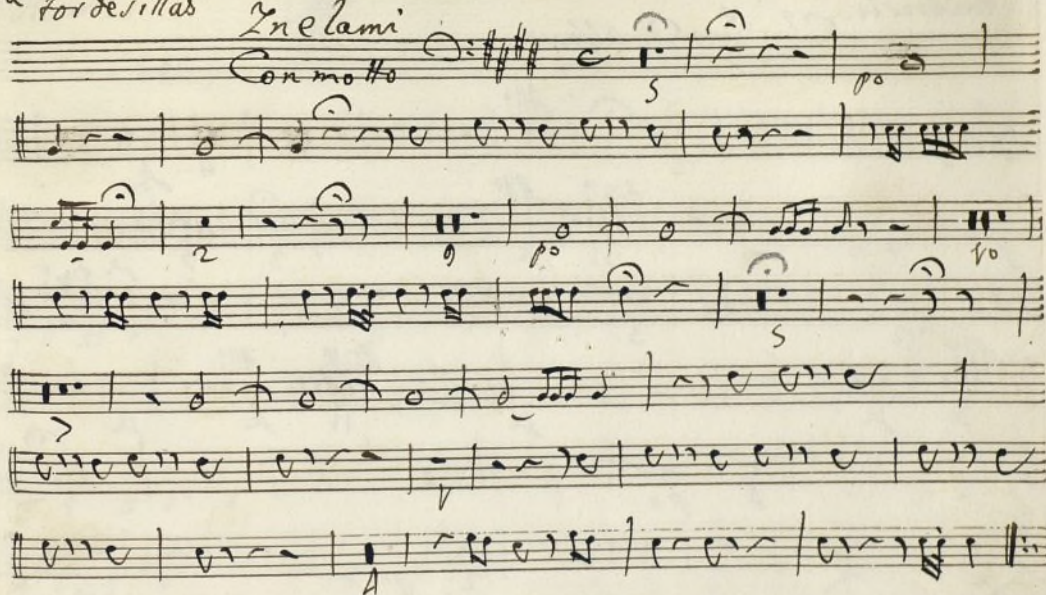 a tordesillas
Inelami
Con motto
5
po
2
9
po
10
5
7
V
4